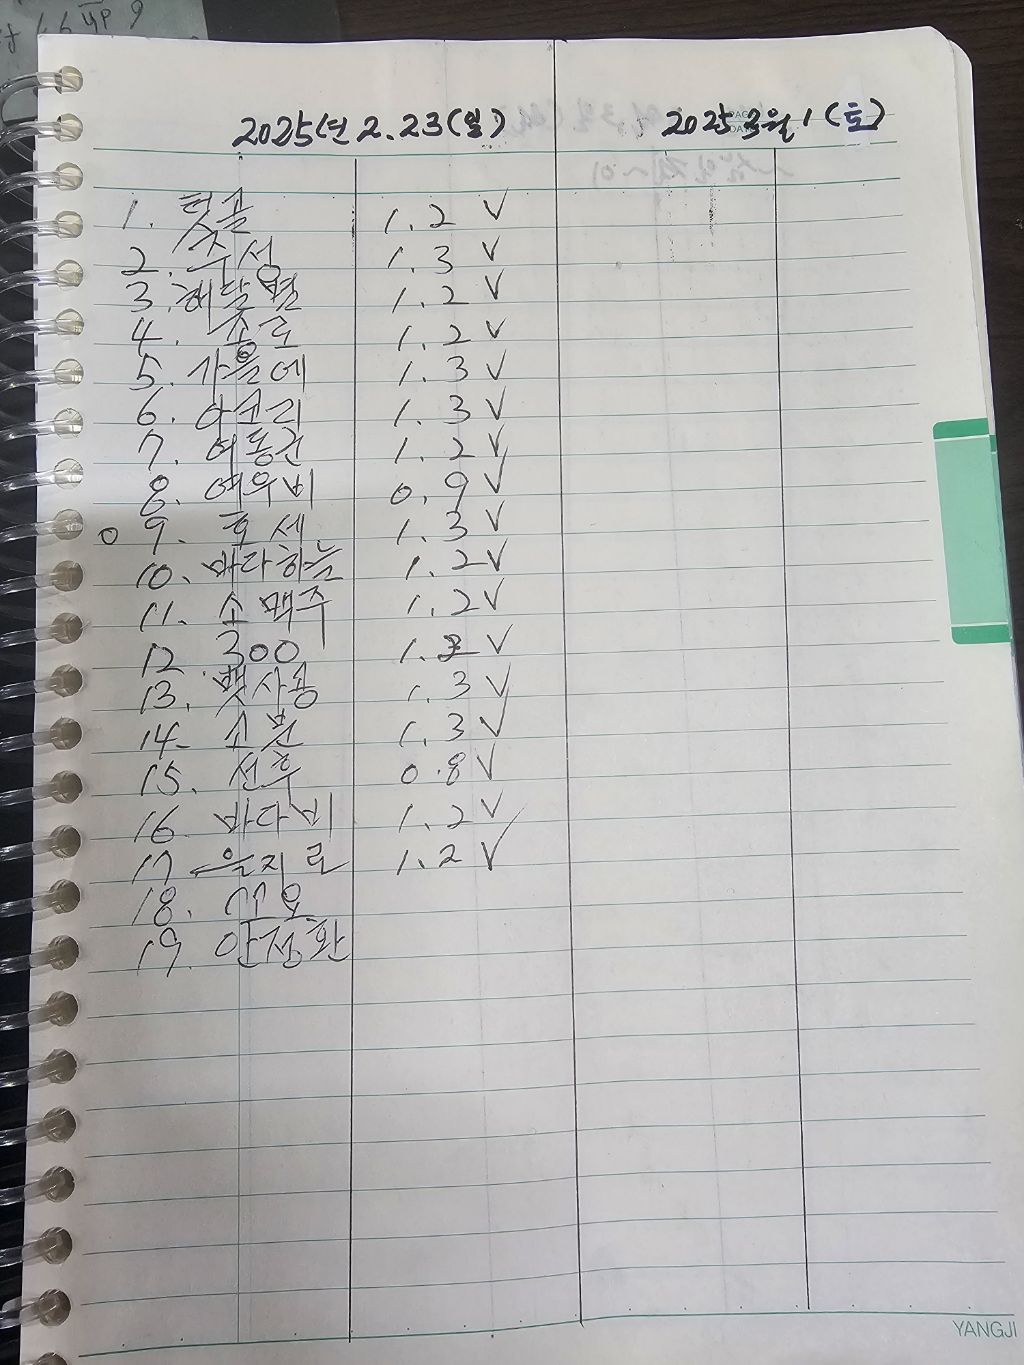 2025년 2.23(일) 2025 3월 1 (토)
1. 텃골 1.2 V
2. 수성 1.3 V
3. 해달별 1.2 V
4. 종로 1.2 V
5. 가을에 1.3 V
6. 아소리 1.3 V
7. 여동건 1.2 V
8. 여우비 0.9 V
0 9. 호세 1.3 V
10. 바다하늘 1.2 V
11. 소맥주 1.2 V
12 300 V
13. 뱃사공 1.3 V
14. 소분 1.3 V
15. 선후 0.8 V
16 바다비 1.2 V
17 을지로 1.2 V
18.
19. 안정환
YANGJI